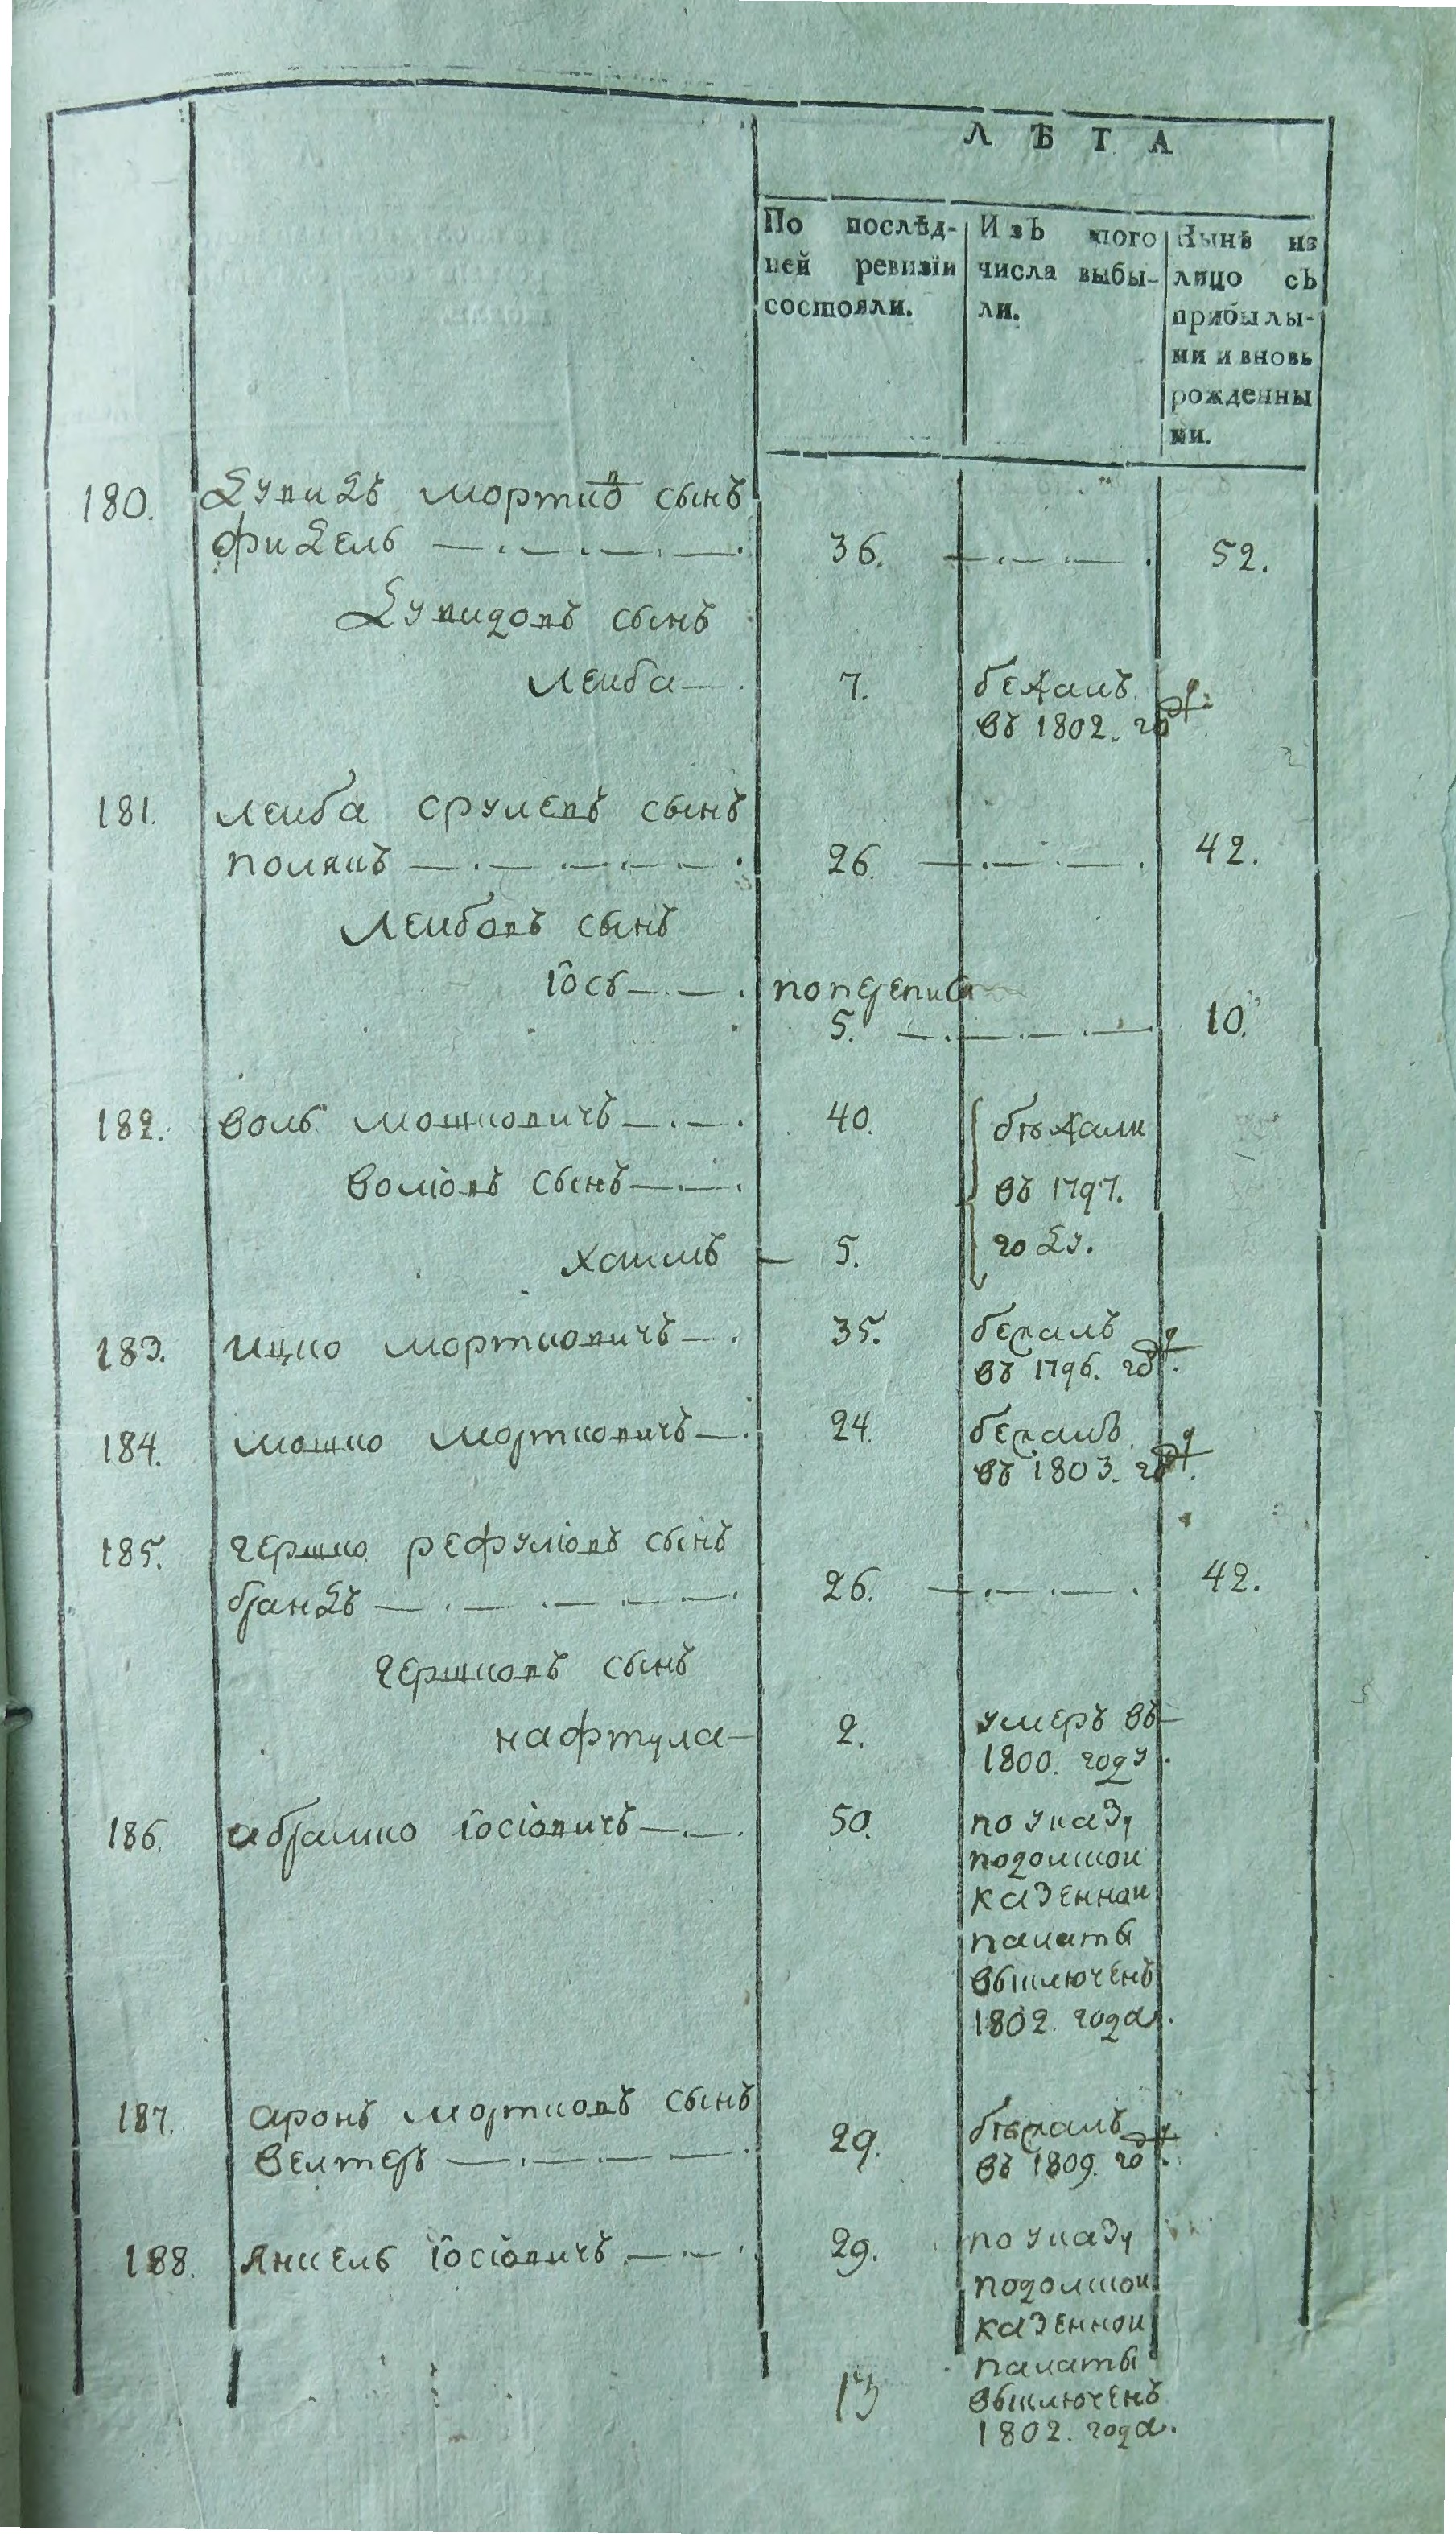 ЛѢТА
По послѣд-
ней ревизіи
состояли.
Изъ того
числа выбы-
ли.
Нынѣ на
лицо съ
прибылы-
ми и вновь
рожденны
ми.
180. Дувидъ мортковъ сынъ
фидель 36. 52.
Дувидовъ сынъ
Леиба 7. бежалъ
въ 1802. год
181. Леиба срулевъ сынъ
полякъ 26. 42.
Леибовъ сынъ
Іось по ревизіи
5. 10.
182. Воль мошковичъ 40. бѣжали
Воліовъ сынъ въ 1797.
хаимъ 5. году.
183. ицко мортковичъ 35. бежалъ
въ 1796. год.
184. мошко мортковичъ 24. бежалъ
въ 1803. год.
185. гершко рефуліовъ сынъ
брандъ 26. 42.
гершковъ сынъ
нафтула 2. умеръ въ
1800. году.
186. абрамко іосіовичъ 50. по указу
подолской
казеннои
палаты
выключенъ
1802. года.
187. аронъ мортковъ сынъ
велтеръ 29. бѣжалъ
въ 1809. год.
188. янкель іосіовичъ 29. по указу
подолской
казеннои
палаты
13 выключенъ
1802. года.